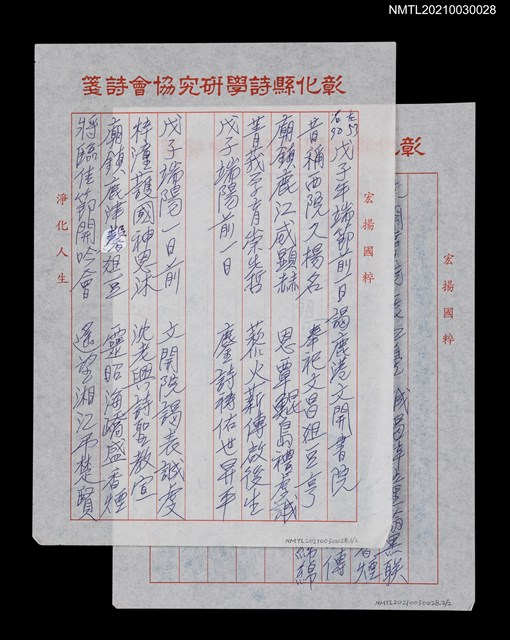 NMTL20210030028
彰化縣詩學研究協會詩箋
宏揚國粹
左53
右90
戊子年端節前一日謁鹿港文開書院
昔稱西院久揚名 奉祀文昌俎豆亨
廟鎮鹿江咸顯赫 恩覃鯤島禮虔誠
菁莪孕育崇先哲 薪火薪傳啟後生
戊子端陽前一日 鏖詩禱佑世昇平
戊子端陽一日前 文開院謁表誠虔
梓潼護國神恩沐 沈老興詩聖教宣
廟鎮鹿津馨俎豆 靈昭海嶠盛香煙
將臨佳節開吟會 遙望湘江弔楚賢
淨化人生
NMTL20210030028.1/2
彰化
宏揚國粹
聯
煙
傳
綿綿
NMTL20210030028.2/2